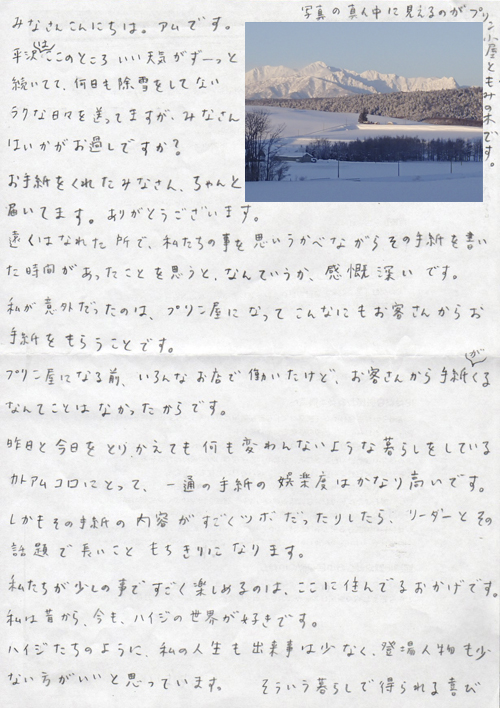 みなさんこんにちは。アムです。
平沢はここのところ いい天気がずーっと
続いてて、何日も除雪をしてない
ラクな日々を送ってますが、みなさん
はいかがお過しですか?
写真の真ん中に見えるのがプリン小屋ともみの木です。
お手紙をくれたみなさん、ちゃんと
届いてます。ありがとうございます。
遠くはなれた所で、私たちの事を思いうかべながらその手紙を書い
た時間があったことを思うと、なんていうか、感慨深いです。
私が意外だったのは、プリン屋になってこんなにもお客さんからお
手紙をもらうことです。
プリン屋になる前、いろんなお店で働いたけど、お客さんから手紙がくる
なんてことはなかったからです。
昨日と今日をとりかえても何も変わんないような暮らしをしている
カトアムコロにとって、一通の手紙の娯楽度はかなり高いです。
しかもその手紙の内容がすごくツボだったりしたら、リーダーとその
話題で長いこともちきりになります。
私たちが少しの事ですごく楽しめるのは、ここに住んでるおかげです。
私は昔から、今も、ハイジの世界が好きです。
ハイジたちのように、私の人生も出来事は少なく、登場人物も少
ない方がいいと思っています。 そういう暮らしで得られる喜び